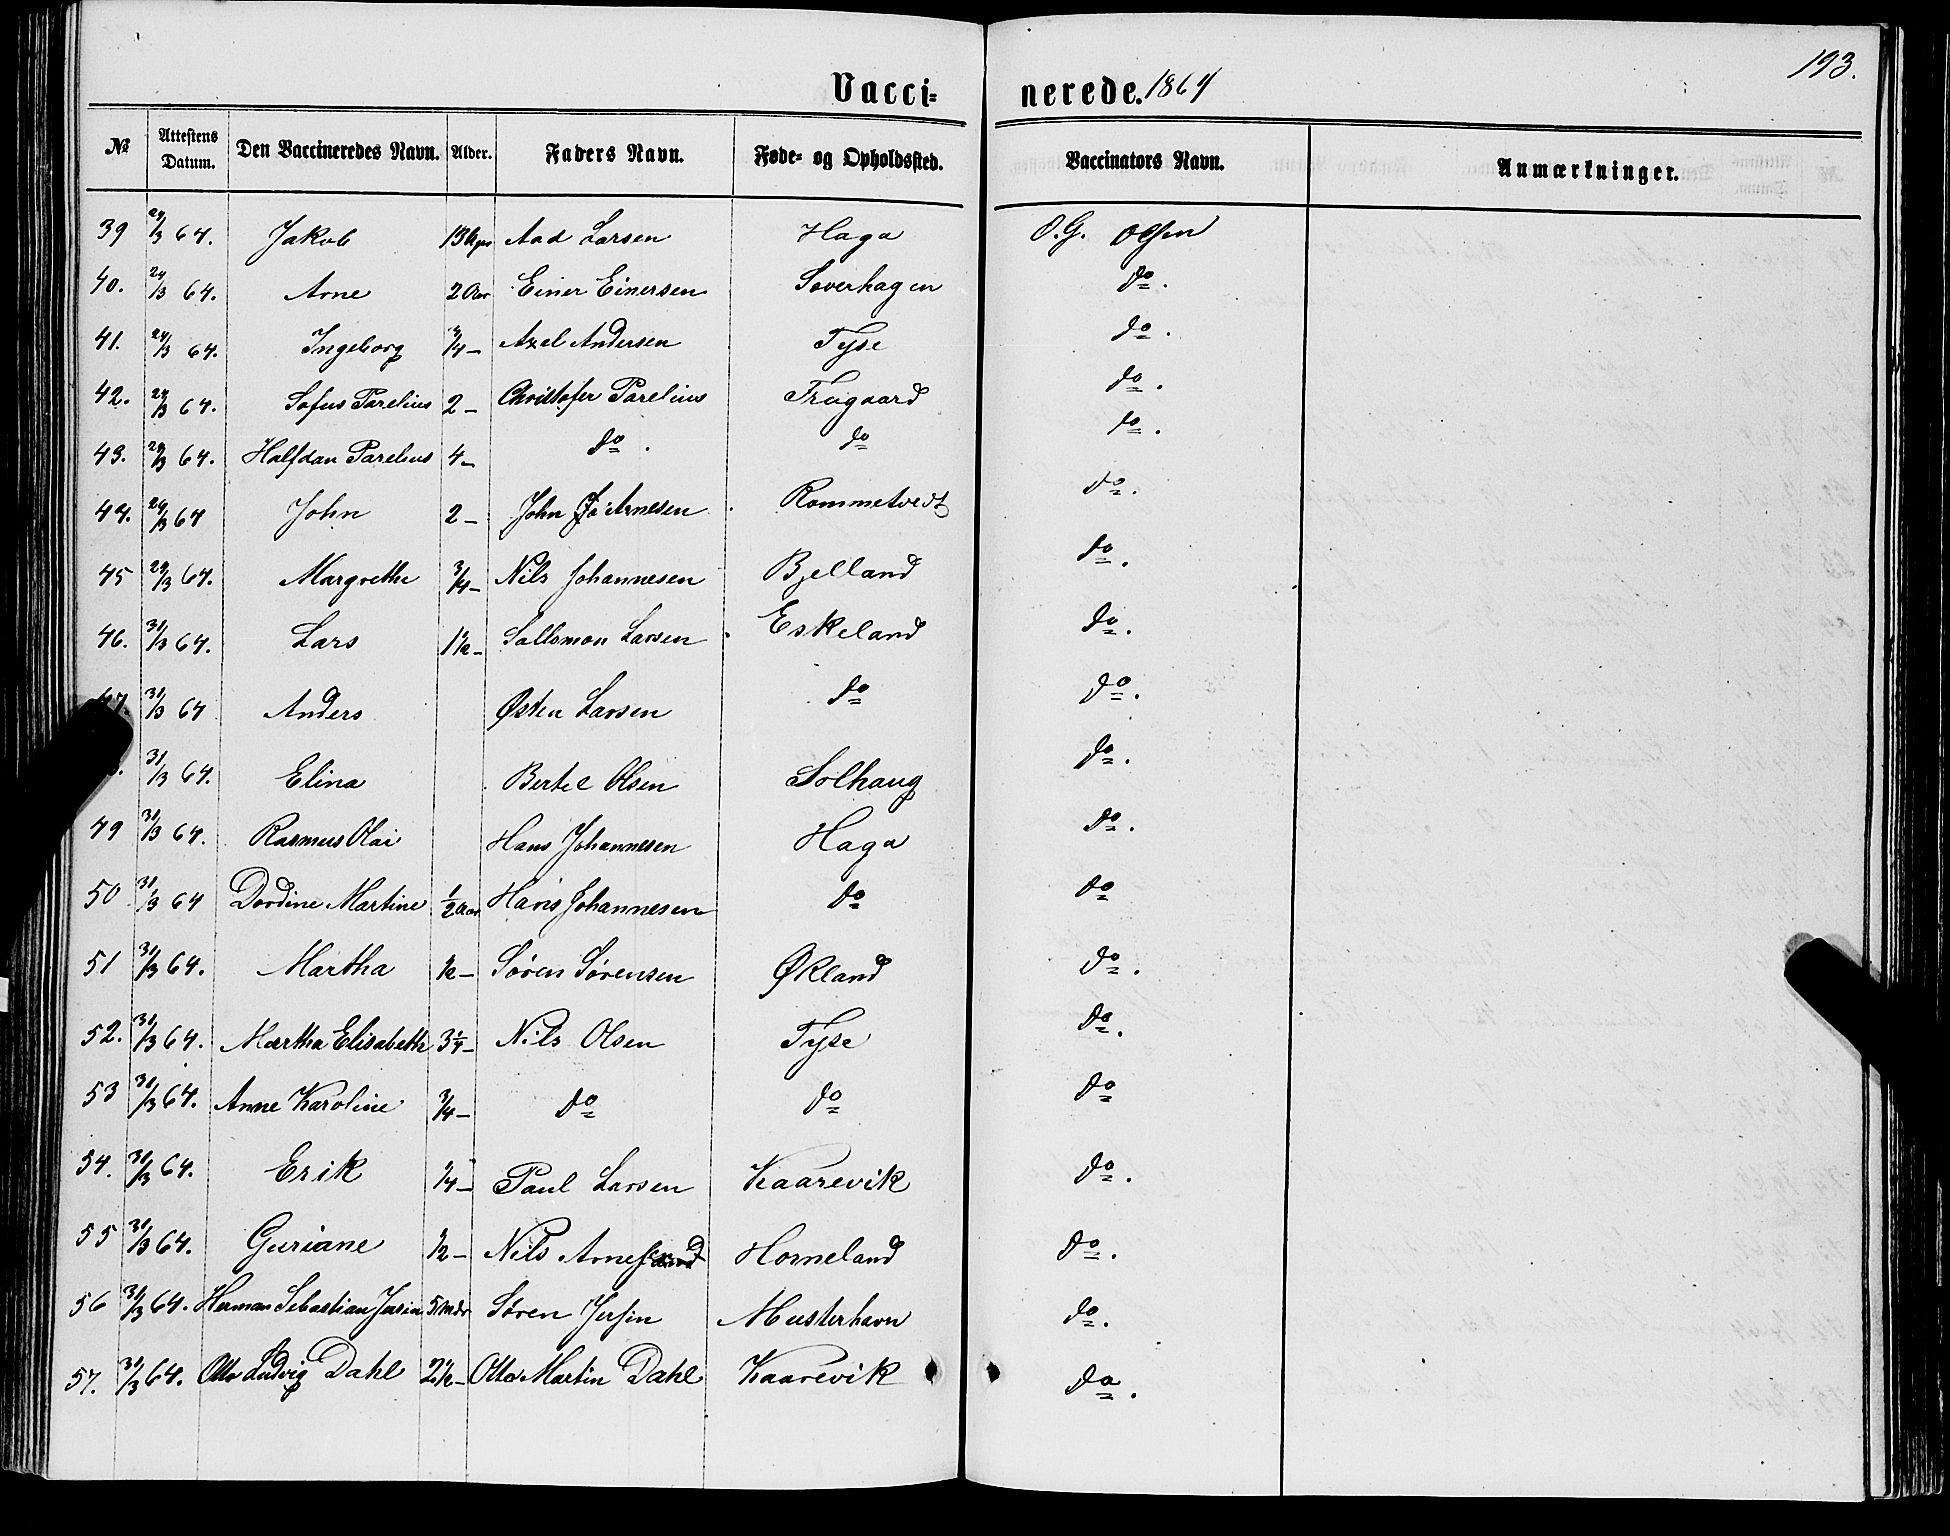 193.
Vacci= nerede. 1864
№ Attestens Datum. Den Vaccineredes Navn. Alder. Faders Navn. Føde- og Opholdssted. Vaccinators Navn. Anmærkninger.
39 29/3 64. Jakob Aad Larsen Haga O.G. Olsen
40. 29/3 64. Arne 2 Aar Einer Einersen Soverhagen do.
41. 29/3 64. Ingeborg 3/4 - Axel Andersen Tyse do.
42. 29/3 64. Sofus Parelius 2 - Christofer Parelius Frugaard do.
43. 29/3 64. Halfdan Parelius 4 - do. do do.
44. 29/3 64 John 2 - John Arnesen Rommetvedt do.
45 29/3 64. Margrethe 3/4 - Nils Johannesen Bjelland do.
46. 31/3 64. Lars 1 1/2 - Sallomon Larsen Eskeland do.
47. 31/3 64 Anders Østen Larsen do do.
31/3 64. Elina Bertel Olsen Solhaug do.
49 31/3 64. Rasmus Olai Hans Johannesen Haga do.
50 31/3 64 Dordine Martine 1/2 Aar Hans Johannesen do do
51 31/3 64. Martha 1/2 - Søren Sørensen Økland do.
52. 31/3 64. Martha Elisabeth 3 1/4 - Nils Olsen Tyse do.
53 31/3 64. Anne Karoline 3/4 - do do do
54. 31/3 64. Erik 1/4 - Paul Larsen Kaarevik do.
55 31/3 64. Guriane 1/2 - Nils Horneland do.
56 31/3 64. Herman Sebastian Jersin 5 Mdr Søren Jersin Musterhavn do.
57. 31/3 64. Otto Ludvig Dahl 2 1/2 - Otto Martin Dahl Kaarevik do.